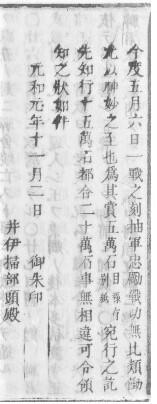 今度五月六日一戰之刻抽軍忠勵戰功無比類働
尤以神妙之至也爲其賞五萬石目録有別紙宛行之訖
先知行十五萬石都合二十萬石事無相違可令領
知之狀如件
元和元年十一月二日　御朱印
井伊掃部頭殿